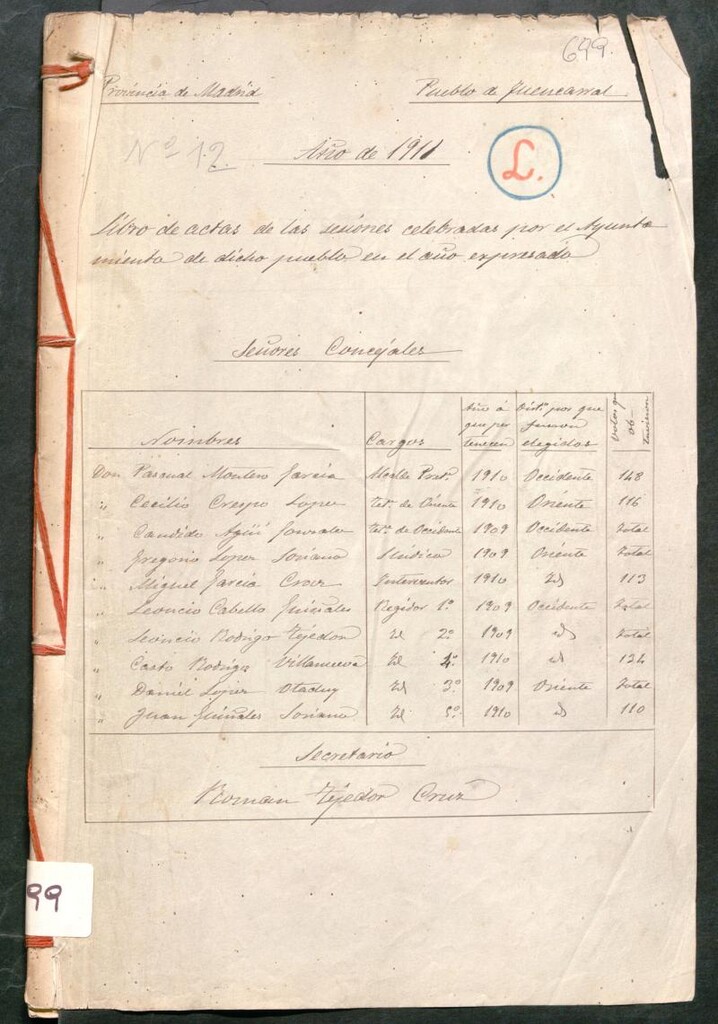 699.
Provincia de Madrid Pueblo de Fuencarral
Nº 12 Año de 1911 L.
Libro de actas de las sesiones celebradas por el Ayunta
miento de dicho pueblo en el año expresado
Señores Concejales
Nombres Cargos Año á que per tenecen Distº por que fueron elegidos Votos que ob- tuvieron
Don Pascual Montero Garcia Alcalde Presᵗᵉ 1910 Occidente 148
" Cecilio Crespo Lopez Teᵗᵉ de Oriente 1910 Oriente 116
" Candido Agüí Gonzalez Teᵗᵉ de Occidente 1909 Occidente total
" Gregorio Lopez Soriano Sindico 1909 Oriente total
" Miguel Garcia Cruz Interventor 1910 Id 113
" Leoncio Cabello Guiñales Regidor 1º 1909 Occidente total
" Leoncio Rodrigo Tejedor Id 2º 1909 id total
" Casto Rodrigo Villanueva Id 4º 1910 id 124
" Daniel Lopez Otaduy Id 3º 1909 Oriente total
" Juan Guiñales Soriano Id 5º 1910 id 110
Secretario
Roman Tejedor Cruz
99